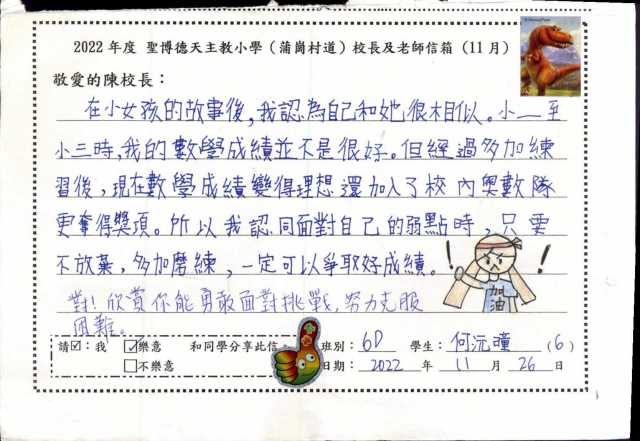 2022 年度 聖博德天主教小學（蒲崗村道）校長及老師信箱（11 月）
敬愛的陳校長：
在小女孩的故事後，我認為自己和她很相似。小一至
小三時，我的數學成績並不是很好。但經過多加練
習後，現在數學成績變得理想還加入了校內奧數隊
更奪得獎項。所以我認同面對自己的弱點時，只要
不放棄，多加磨練，一定可以爭取好成績。
加油
對！欣賞你能勇敢面對挑戰，努力克服
困難。
請☑：我 ☑樂意 和同學分享此信。 班別：6D 學生：何沅曈 (6)
□不樂意 日期：2022 年 11 月 26 日